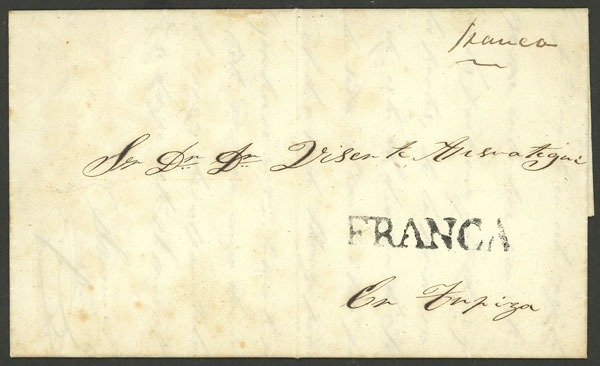 franca
Sor Dr. Dn. Visente Anzoategui
FRANCA
En Tupiza